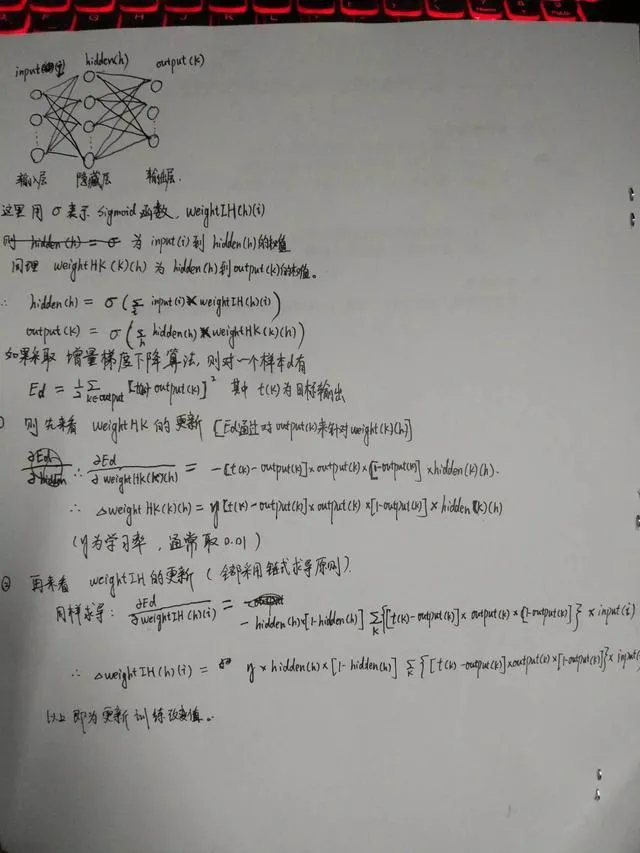 input(i) hidden(h) output(k)
输入层 隐藏层 输出层.
这里用 σ 表示 sigmoid 函数, weightIH(h)(i)
则 hidden(h) = σ 为 input(i)到 hidden(h)的权值
同理 weightHK(k)(h) 为 hidden(h)到output(k)的权值。
∴ hidden(h) = σ(∑i input(i)×weightIH(h)(i))
output(k) = σ(∑h hidden(h)×weightHK(k)(h))
如果采取 增量梯度下降算法, 则对一个样本d有
Ed = 1/2 ∑k∈output [t(k)-output(k)]² 其中 t(k)为目标输出
则先来看 weightHK 的更新 [Ed通过对output(k)来针对weight(k)(h)]
∂Ed/∂hidden ∴ ∂Ed/∂weightHK(k)(h) = -[t(k)-output(k)]×output(k)×[1-output(k)]×hidden(k)(h).
∴ △weightHK(k)(h) = η[t(k)-output(k)]×output(k)×[1-output(k)]×hidden(k)(h)
(η为学习率, 通常取 0.01)
② 再来看 weightIH的更新 (全部采用链式求导原则).
同样求导: ∂Ed/∂weightIH(h)(i) = -hidden(h)×[1-hidden(h)] ∑k{[t(k)-output(k)]×output(k)×[1-output(k)]}×input(i)
∴ △weightIH(h)(i) = η×hidden(h)×[1-hidden(h)] ∑k{[t(k)-output(k)]×output(k)×[1-output(k)]}×input(
以上即为更新训练改变值。